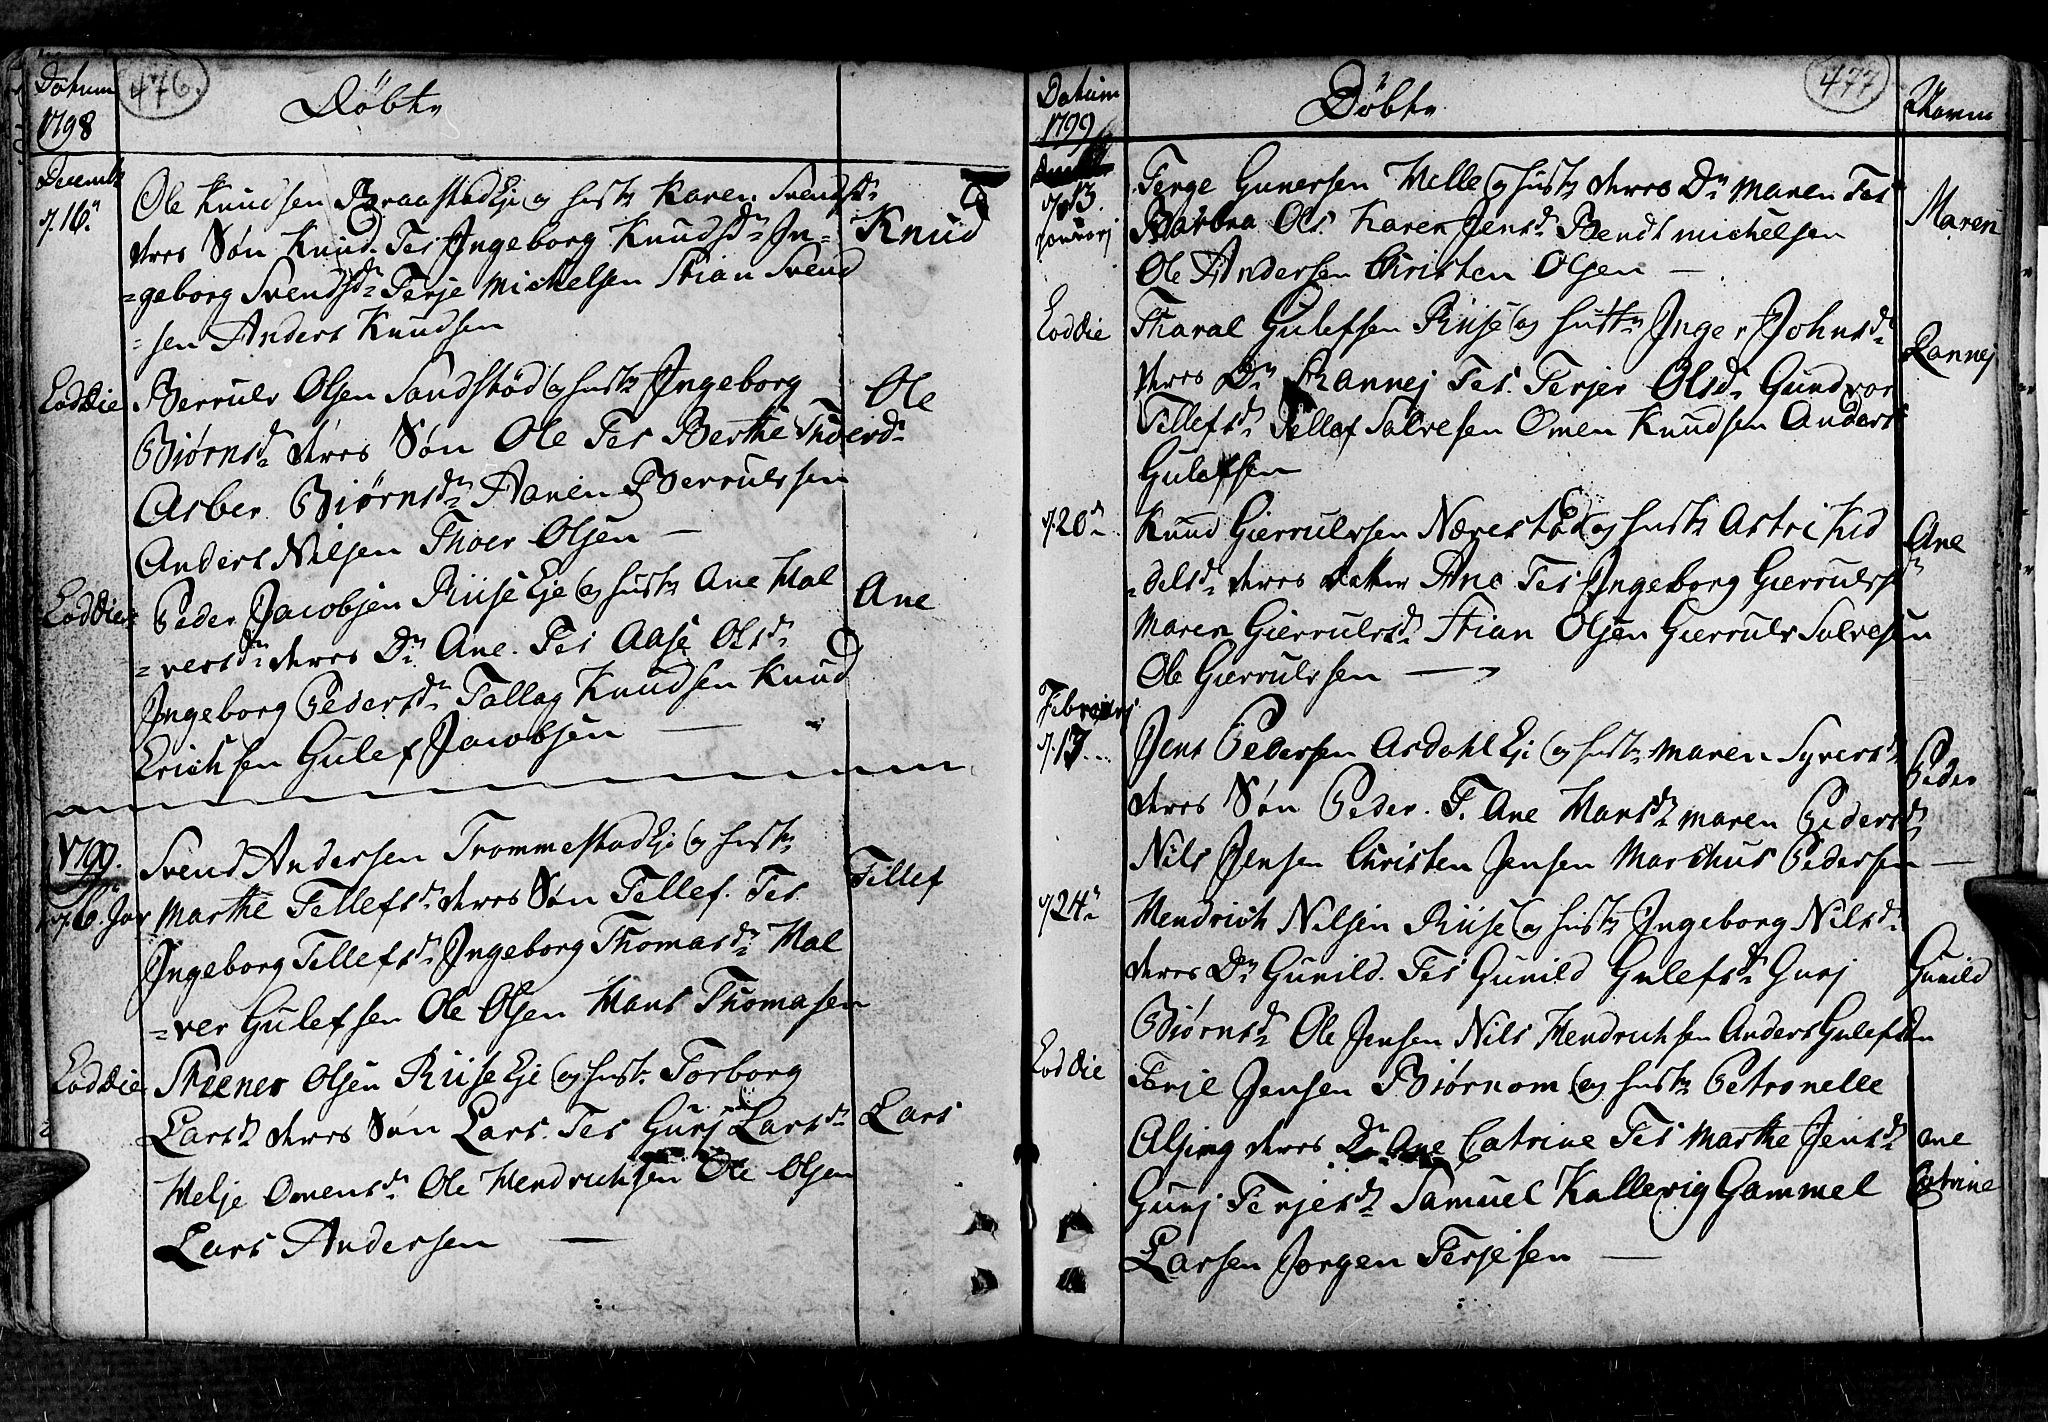 Datum
1798
476.
Döbte
Decembr
d. 16de
Ole Knudsen Braastad Eje og hustr Karen Svendsd
deres Søn Knud. Tes Ingeborg Knudsdr In=
=geborg Svendsdr Terje Michelsen Stian Svend
=sen Anders Knudsen
Knud
Eoddie
Berrulv Olsen Sandstöd og hustr Ingeborg
Biørnsdr deres Søn Ole Tes Berthe Thoersdr
Asber Biørnsdr Aanen Berrulvsen
Anders Nilsen Thoer Olsen —
Ole
Eoddie
Peder Jacobsen Riise Eje og hustr Ane Hal
=versdr deres Dr Ane. Tes Aase Olsdr
Ingeborg Pedersdr Tallag Knudsen Knud
Erichsen Gulef Jacobsen —
Ane
1799.
d. 6. Jan
Svend Andersen Trommestad Eje og hustr
Marthe Tellefsdr deres Søn Tellef. Tes
Ingeborg Tellefsdr Ingeborg Thomasdr Hal
=ver Gulefsen Ole Olsen Hans Thomasen
Tellef
Eoddie
Steener Olsen Riise Eje og hustr Torborg
Larsdr deres Søn Lars. Tes Gurj Larsdr
Helje Omensdr Ole Hendrichsen Ole Olsen
Lars Andersen —
Lars
Datum
1799
477
Döbte
Navn
d. 13.
Januarj
Terge Gunersen Helle og hustr deres Dr Maren Tes
Barbra Ols Karen Jensdr Bendt Michelsen
Ole Andersen Christen Olsen —
Maren
Eoddie
Tharal Gulefsen Riise og hustr Inger Johnsdr
deres Dr Rannej Tes. Terjer Olsdr Gundvor
Tellefsdr Tellef Salvesen Omen Knudsen Anders
Gulefsen
Rannej
d. 20de
Knud Gierrulvsen Nærestöd og hustr Astri Kid
=delsdr deres Datter Ane Tes Ingeborg Gierrulvsdr
Maren Gierrulvsdr Stian Olsen Gierrulv Salvesen
Ole Gierrulvsen —
Ane
Februarj
d. 17.
Jens Pedersen Asdahl Eje og hustr Maren Syversdr
deres Søn Peder. T. Ane Hansdr Maren Pedersdr
Nils Jensen Christen Jensen Marchus Pedersen —
Peder
d. 24de
Hendrich Nilsen Riise og hustr Ingeborg Nilsdr
deres Dr Gunild. Tes Gunild Gulefsdr Gurj
Biørnsdr Ole Jensen Nils Hendrichsen Anders Gulefsen
Gunild
Eoddie
Terje Jensen Biørnom og hustr Petronelle
Alsing deres Dr Ane Catrine Tes Marthe Jensdr
Gurj Terjesdr Samuel Kallevig Gammel
Larsen Jørgen Terjesen —
Ane
Catrine